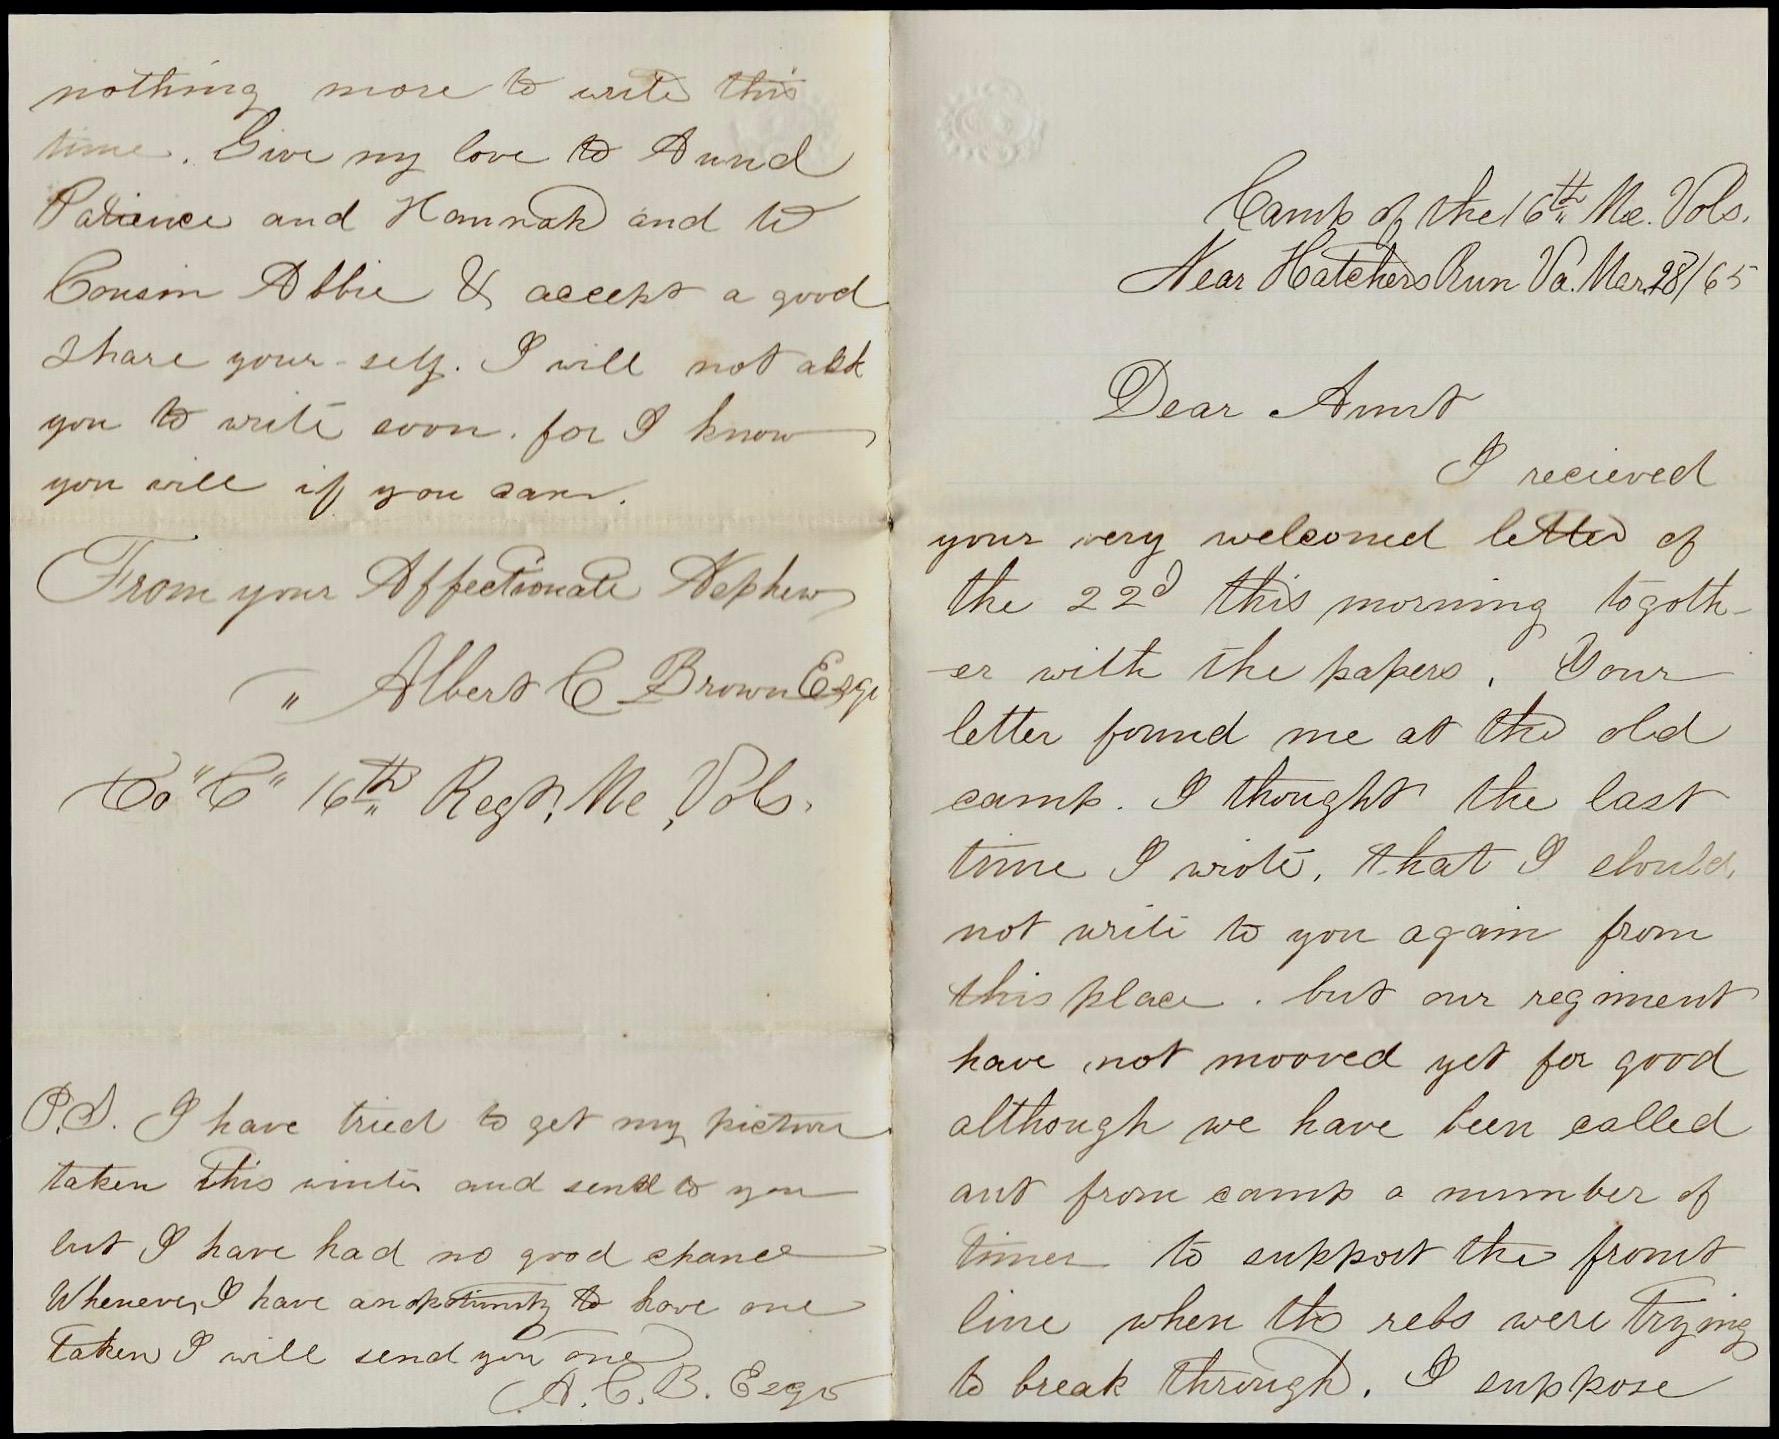 Camp of the 16th Me. Vols.
Near Hatchers Run Va. Mar. 28/65
Dear Aunt
I recieved
your very welcomed letter of
the 22d this morning togoth-
-er with the papers. Your
letter found me at the old
camp. I thought the last
time I wrote, that I should,
not write to you again from
this place. but our regiment
have not mooved yet for good
although we have been called
out from camp a number of
times to support the front
line when the rebs were trying
to break through. I suppose
nothing more to write this
time. Give my love to Aund
Patience and Hannah and to
Cousin Abbie & accept a good
share your-self. I will not ask
you to write soon. for I know
you will if you can.
From your Affectionate Nephew
" Albert C Brown Esqr
Co "C" 16th Regt, Me, Vols.
P.S. I have tried to get my picture
taken this winter and send to you
but I have had no good chance
Whenever I have an opotunity to have one
taken I will send you one
A. C. B. Esqr